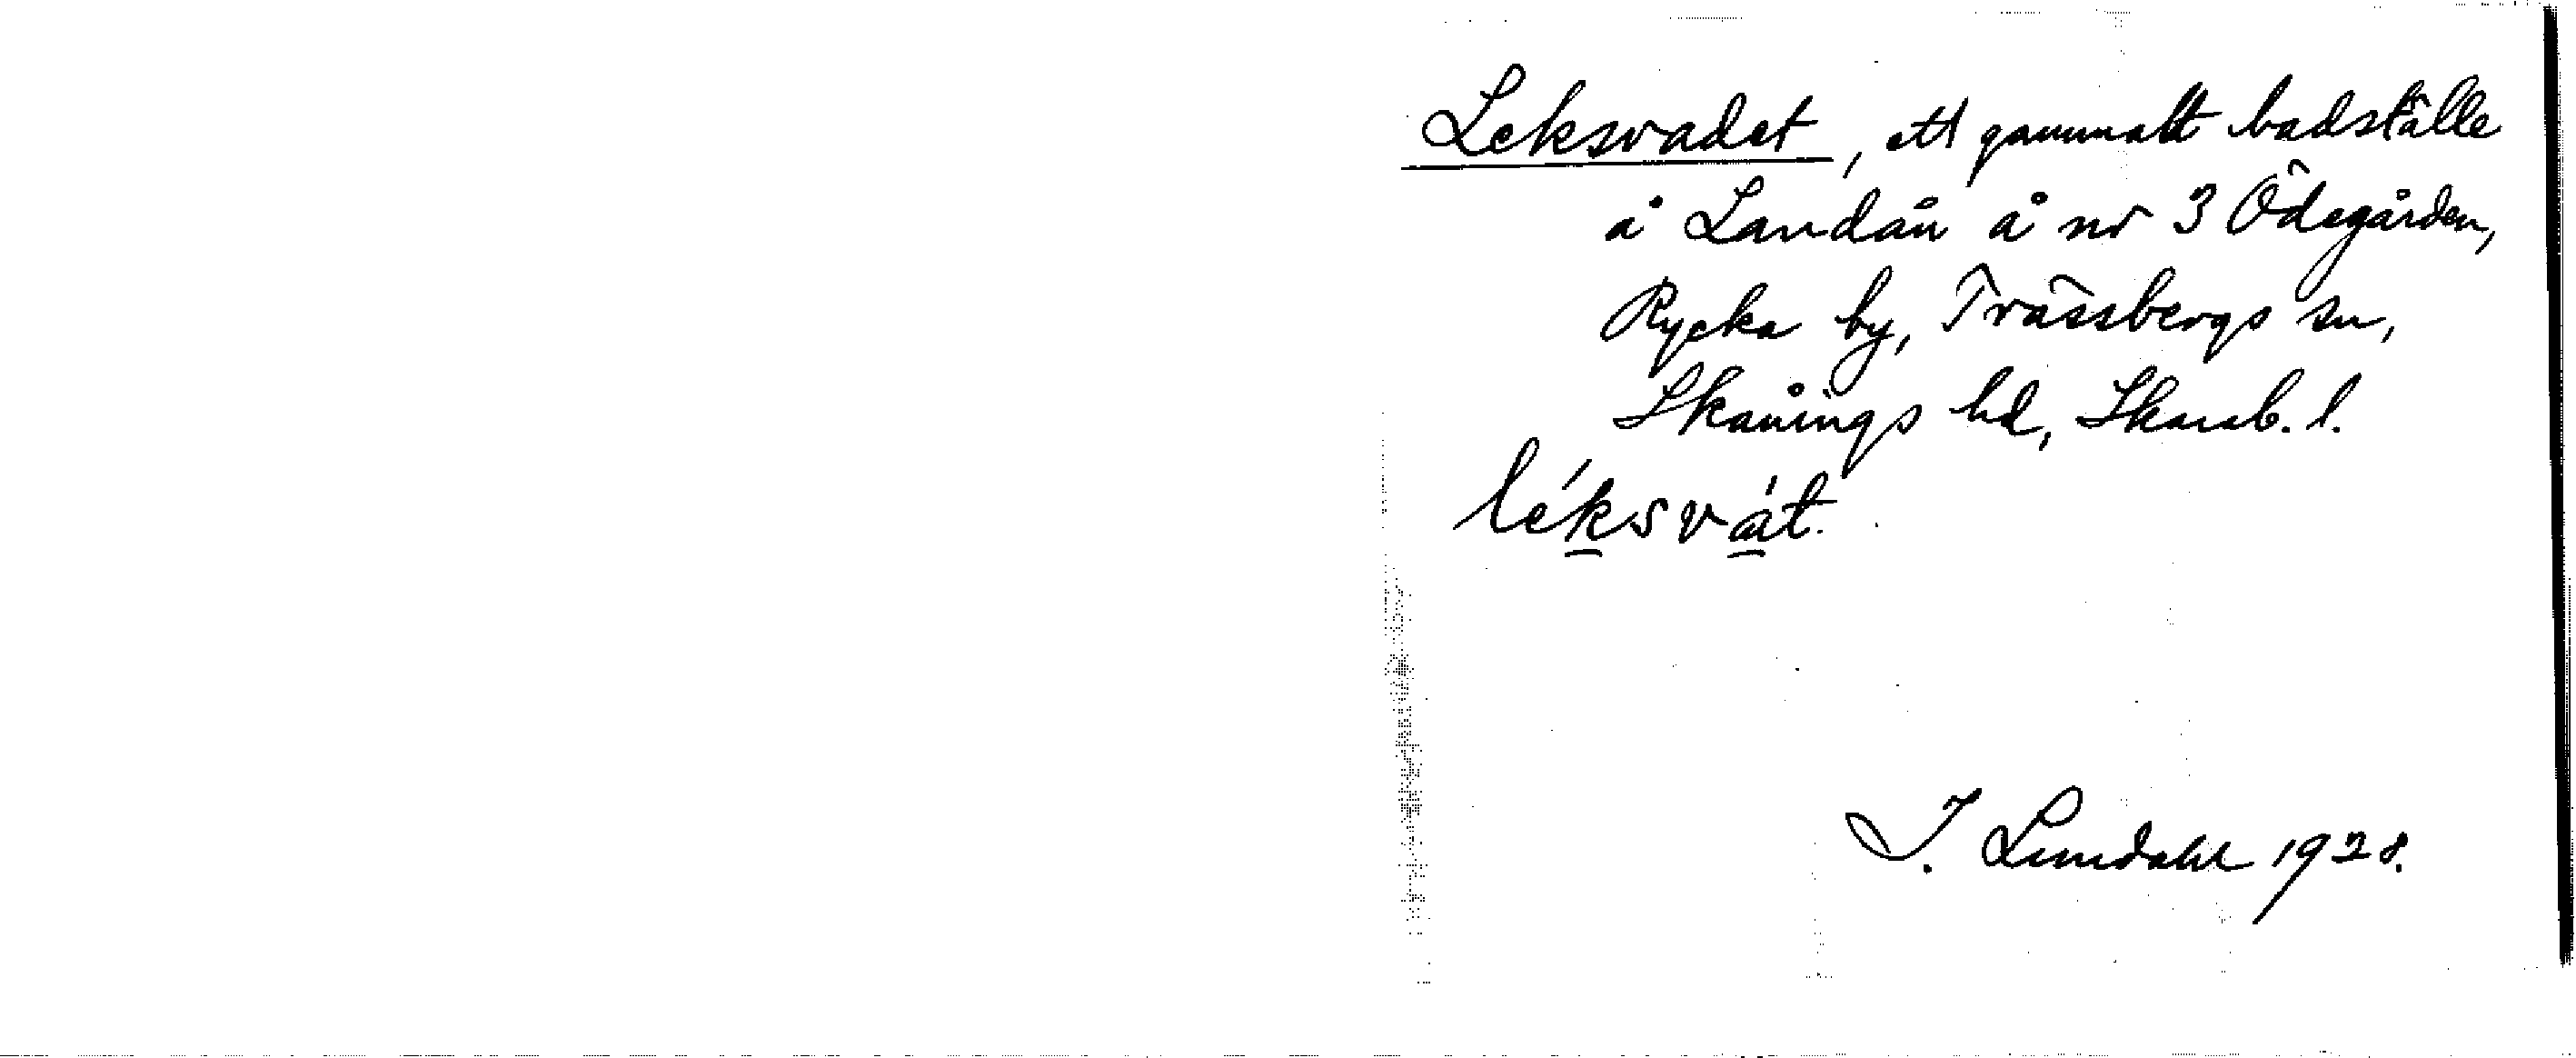 Leksvadet, ett gammalt badställe
å Landån å nr 3 Ödegården,
Rycka by, Trässbergs sn,
Skånings hd, Skarab. l.
léksvát.
J. Lundahl 1928.